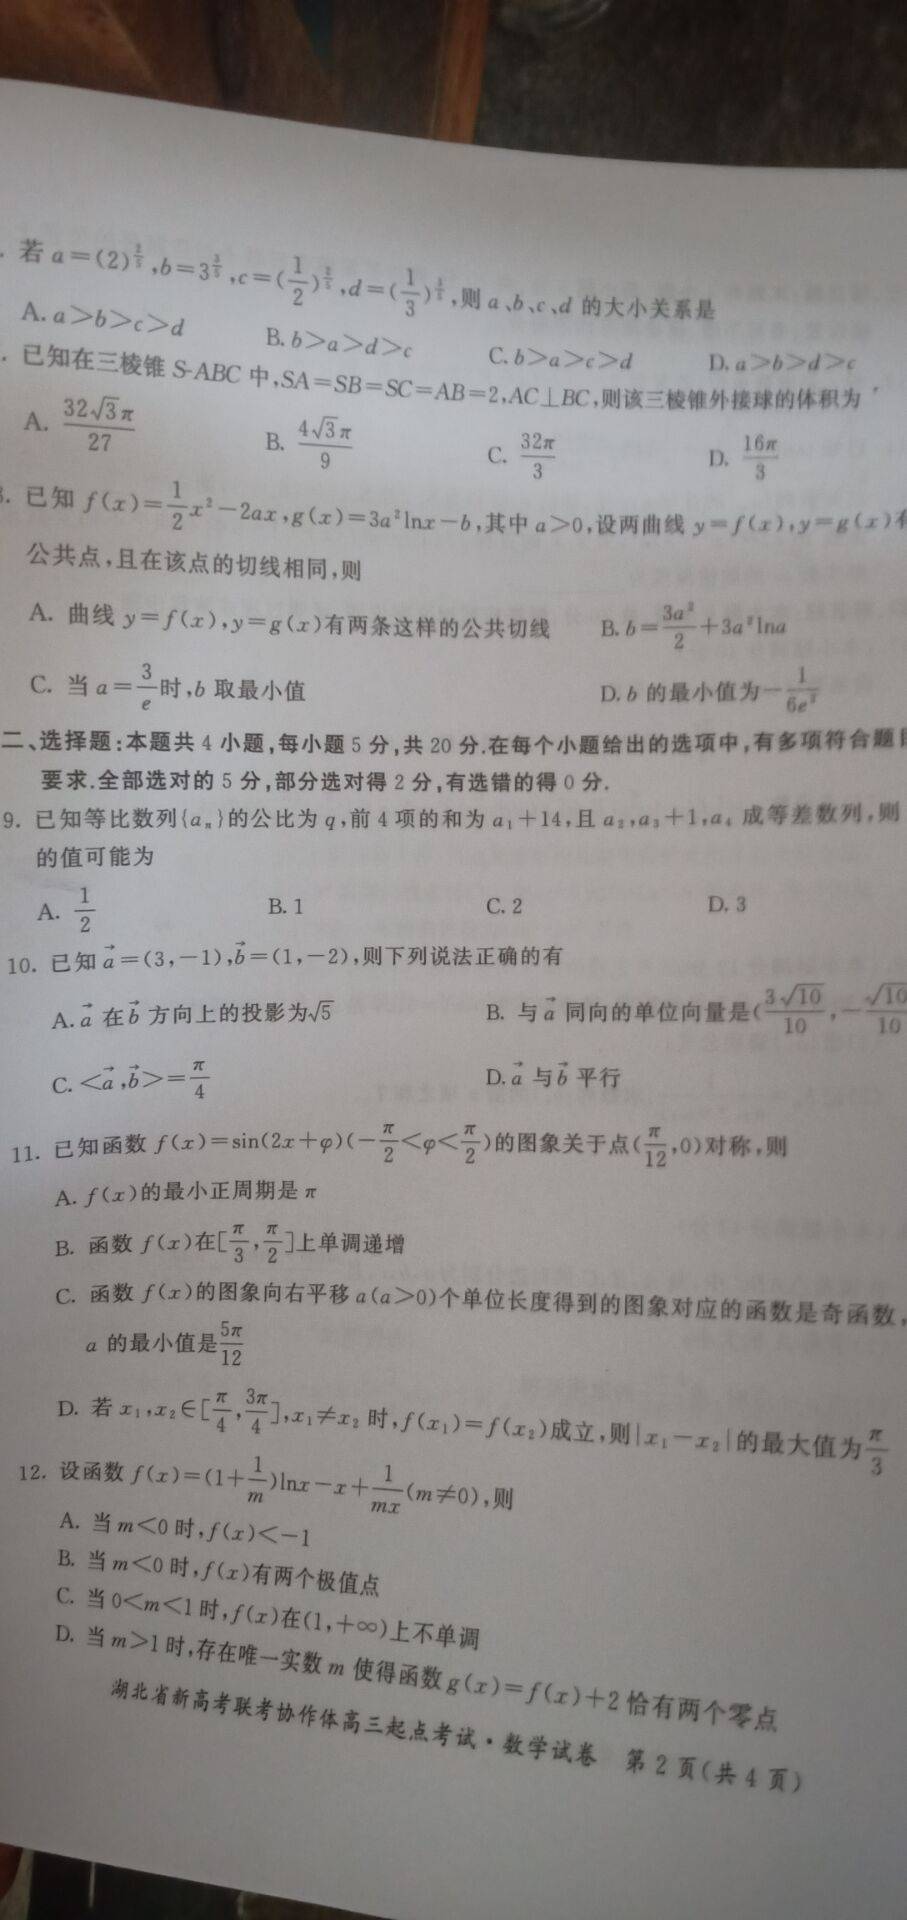 . 若 a=(2),b=3,c=(1/2),d=(1/3),则 a、b、c、d 的大小关系是
A. a>b>c>d B. b>a>d>c C. b>a>c>d D. a>b>d>c
. 已知在三棱锥 S-ABC 中,SA=SB=SC=AB=2,AC⊥BC,则该三棱锥外接球的体积为
A. 32√3π/27 B. 4√3π/9 C. 32π/3 D. 16π/3
8. 已知 f(x)=1/2x²-2ax,g(x)=3a²lnx-b,其中 a>0,设两曲线 y=f(x),y=g(x)有
公共点,且在该点的切线相同,则
A. 曲线 y=f(x),y=g(x)有两条这样的公共切线 B. b=3a²/2+3a²lna
C. 当 a=3/e时,b 取最小值 D. b 的最小值为-1/6e
二、选择题:本题共 4 小题,每小题 5 分,共 20 分.在每个小题给出的选项中,有多项符合题目
要求.全部选对的 5 分,部分选对得 2 分,有选错的得 0 分.
9. 已知等比数列{aₙ}的公比为 q,前 4 项的和为 a₁+14,且 a₂,a₃+1,a₄ 成等差数列,则
的值可能为
A. 1/2 B. 1 C. 2 D. 3
10. 已知 a⃗=(3,-1),b⃗=(1,-2),则下列说法正确的有
A. a⃗ 在 b⃗ 方向上的投影为√5 B. 与 a⃗ 同向的单位向量是(3√10/10,-√10/10
C. <a⃗,b⃗>=π/4 D. a⃗ 与 b⃗ 平行
11. 已知函数 f(x)=sin(2x+φ)(-π/2<φ<π/2)的图象关于点(π/12,0)对称,则
A. f(x)的最小正周期是 π
B. 函数 f(x)在[π/3,π/2]上单调递增
C. 函数 f(x)的图象向右平移 a(a>0)个单位长度得到的图象对应的函数是奇函数,
a 的最小值是5π/12
D. 若 x₁,x₂∈[π/4,3π/4],x₁≠x₂ 时,f(x₁)=f(x₂)成立,则|x₁-x₂|的最大值为π/3
12. 设函数 f(x)=(1+1/m)lnx-x+1/mx(m≠0),则
A. 当 m<0 时,f(x)<-1
B. 当 m<0 时,f(x)有两个极值点
C. 当 0<m<1 时,f(x)在(1,+∞)上不单调
D. 当 m>1 时,存在唯一实数 m 使得函数 g(x)=f(x)+2 恰有两个零点
湖北省新高考联考协作体高三起点考试·数学试卷 第 2 页(共 4 页)